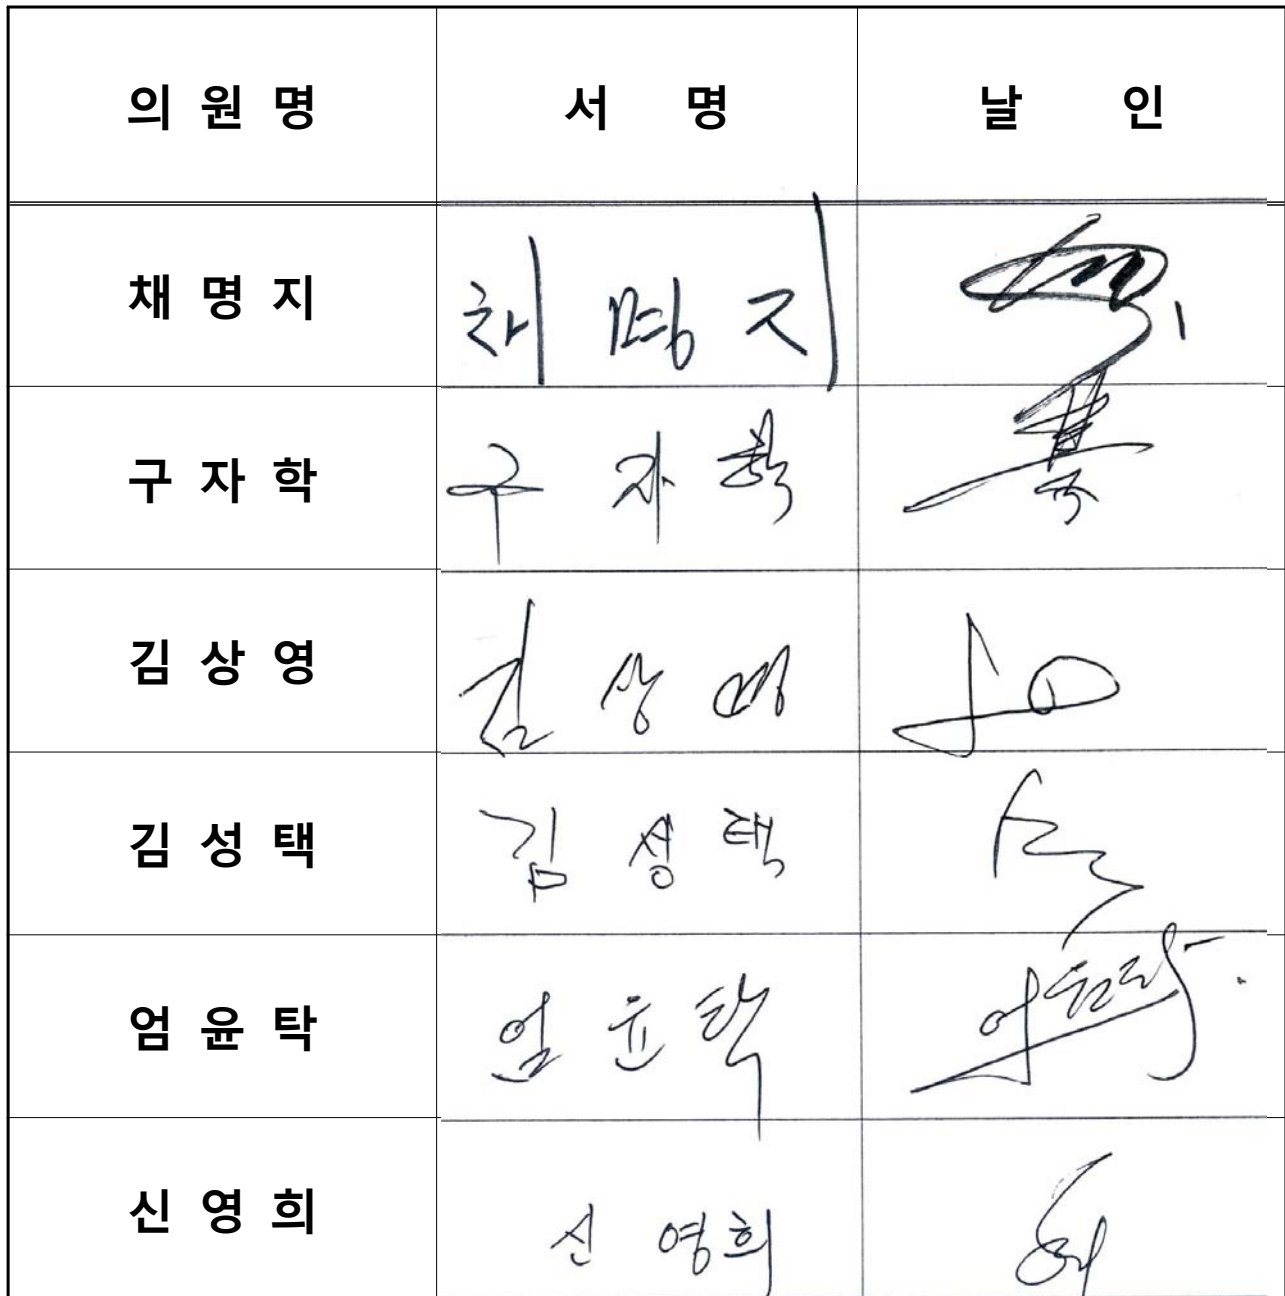 의 원 명 서 명 날 인
채 명 지 채 명 지
구 자 학 구 자 학
김 상 영 김 상 영
김 성 택 김 성 택
엄 윤 탁 엄 윤 탁
신 영 희 신 영희